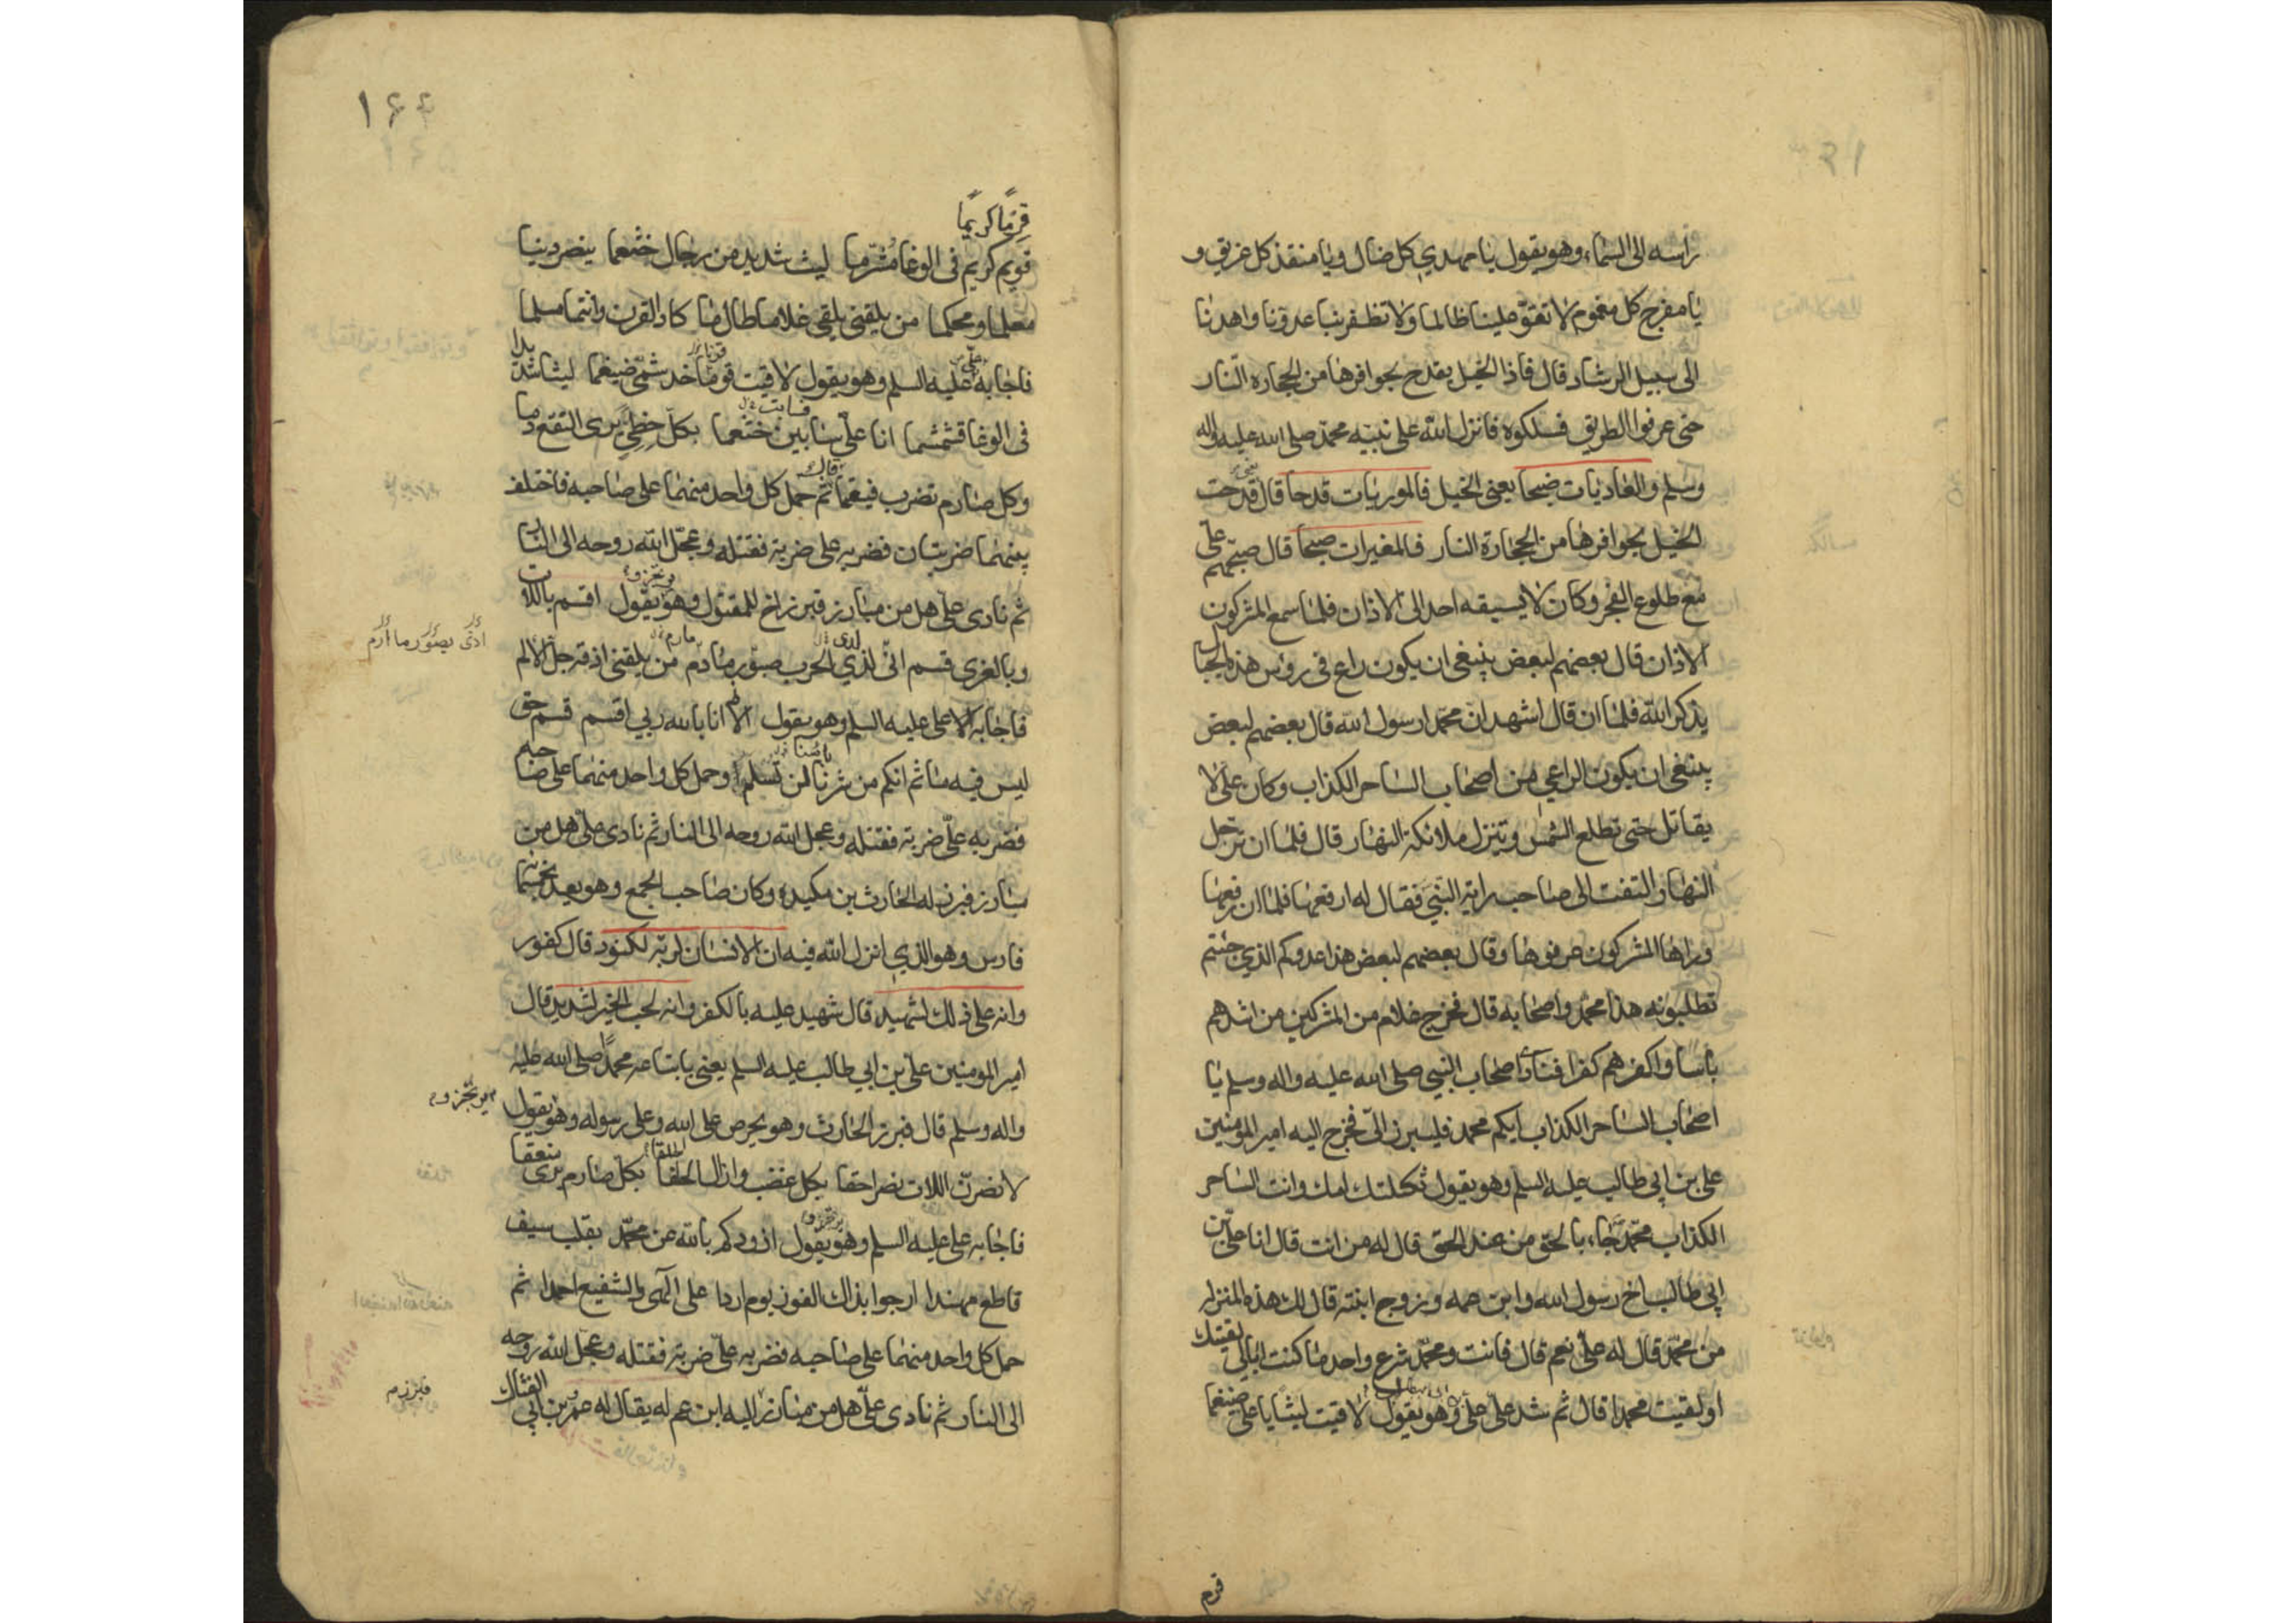 راسه الى السماء وهو يقول يا مهدي كل ضال ويا منقذ كل غريق و
يا مفرج كل مغموم لا تقو علينا ظالما ولا تظفر بنا عدونا واهدنا
الى سبيل الرشاد قال فاذا الخيل يقدح بحوافرها من الحجارة النار
حتى عرفوا الطريق فسلكوه فانزل الله على نبيه محمد صلى الله عليه واله
وسلم والعاديات ضبحا يعني الخيل فالموريات قدحا قال قدحت
الخيل بحوافرها من الحجارة النار فالمغيرات صبحا قال صبحهم علي
مع طلوع الفجر وكان لا يسبقه احد الى الاذان فلما سمع المشركون
الاذان قال بعضهم لبعض ينبغي ان يكون راع في رؤس هذه الجبال
يذكر الله فلما ان قال اشهد ان محمدا رسول الله قال بعضهم لبعض
ينبغي ان يكون الراعي من اصحاب الساحر الكذاب وكان علي لا
يقاتل حتى تطلع الشمس وتنزل ملائكة النهار قال فلما ان ترجل
النهار التفت الى صاحب راية النبي فقال له ارفعها فلما ان رفعها
وراها المشركون عرفوها وقال بعضهم لبعض هذا عدوكم الذي جئتم
تطلبونه هذا محمد واصحابه قال فخرج غلام من المشركين من اشدهم
باسا واكفرهم كفرا فنادى اصحاب النبي صلى الله عليه واله وسلم يا
اصحاب الساحر الكذاب ايكم محمد فليبرز الي فخرج اليه امير المؤمنين
علي بن ابي طالب عليه السلم وهو يقول ثكلتك امك وانت الساحر
الكذاب محمد جاء بالحق من عند الحق قال له من انت قال انا علي بن
ابي طالب اخ رسول الله وابن عمه وزوج ابنته قال لك هذه المنزلة
من محمد قال له علي نعم قال فانت ومحمد شرع واحد ما كنت ابالي لقيتك
او لقيت محمدا قال ثم شد علي علي وهو يقول لاقيت ليثا يا علي ضيغما
قرم
١٤٤
قرما كريما
قويم كريم في الوغا مشرما ليث شديد من رجال خثعما ينصر دينا
معلما ومحكما من يلقني يلقي غلاما طال ما كاد القرن وانتما مسلما
فاجابه علي عليه السلم وهو يقول لاقيت قوما خدشمي ضيغما ليثا شديدا
في الوغا قشمشما انا علي سابين خثعما بكل خطي يرى النقع دما
وكل صارم تضرب فيغما قال ثم حمل كل واحد منهما على صاحبه فاختلف
بينهما ضربتان فضربه علي ضربة فقتله وعجل الله روحه الى النار
ثم نادى علي هل من مبارز فبرز اخ للمقتول وهو يقول اقسم باللات
وبالعزى قسم اني لذي الحرب صبور مادم من يلقني اذقه جل الالم
فاجابه علي عليه السلم وهو يقول انا بالله ربي اقسم قسم حق
ليس فيه ماثم انكم من شرنا لن تسلم وحمل كل واحد منهما على صاحبه
فضربه علي ضربة فقتله وعجل الله روحه الى النار ثم نادى علي هل من
مبارز فبرز له الحارث بن مكيدة وكان صاحب الجمع وهو يعد بخمسمائة
فارس وهو الذي انزل الله فيه ان الانسان لربه لكنود قال كفور
وانه على ذلك لشهيد قال شهيد عليه بالكفر وانه لحب الخير لشديد قال
امير المومنين علي بن ابي طالب عليه السلم يعني باتباعه محمدا صلى الله عليه
واله وسلم قال فبرز الحارث وهو يحرص على الله وعلى رسوله وهو يقول
لانصرن اللات نصرا حقا بكل عضب وازال الحلقا بكل صارم يرى منعقا
فاجابه علي عليه السلم وهو يقول اذودكم بالله عن محمد بقلب سيف
قاطع مهندا ارجوا بذاك الفوز يوم اردا على الهي والشفيع احمدا ثم
حمل كل واحد منهما على صاحبه فضربه علي ضربة فقتله وعجل الله روحه
الى النار ثم نادى علي هل من مبارز اليه ابن عم له يقال له عمرو بن ابي الفتاك